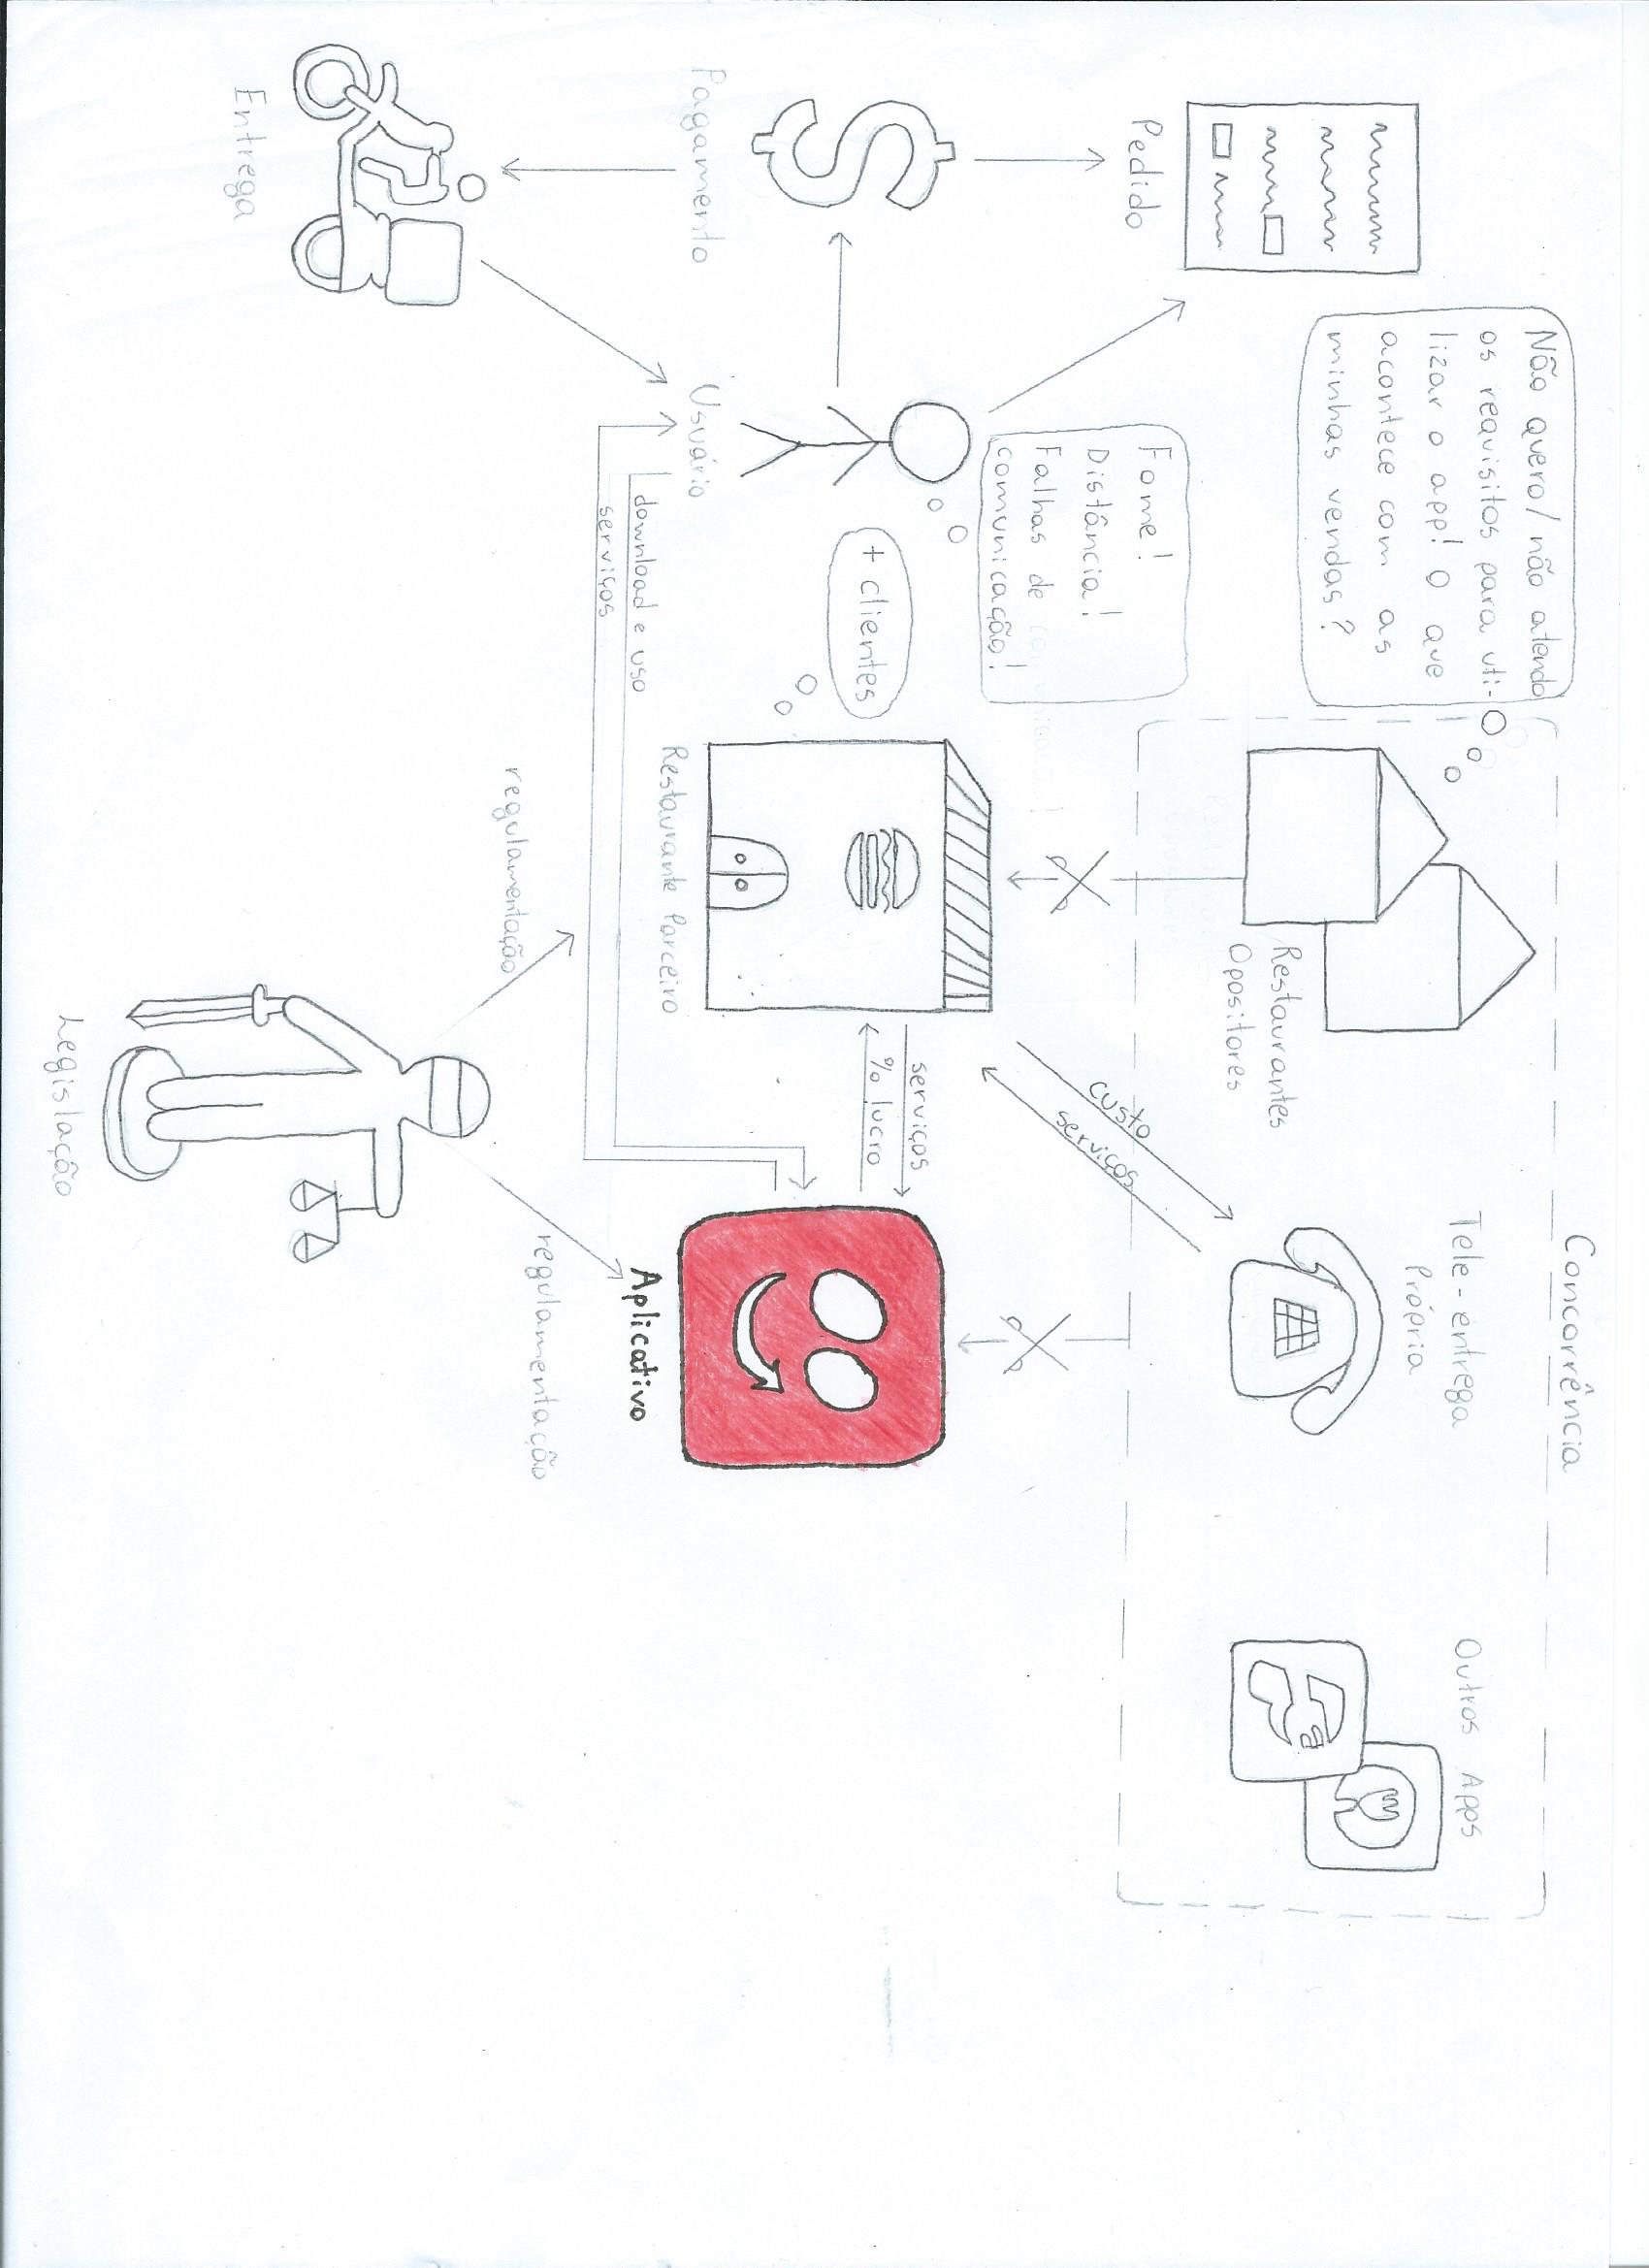 Concorrência
Não quero/ não atendo
os requisitos para uti-
lizar o app! O que
acontece com as
minhas vendas?
Tele-entrega
Própria
Outros Apps
Restaurantes
Opositores
Pedido
Fome!
Distância!
Falhas de
comunicação!
custo
serviços
serviços
% lucro
+ clientes
Pagamento
Usuário
Restaurante Parceiro
Aplicativo
download e uso
serviços
regulamentação
regulamentação
Entrega
Legislação